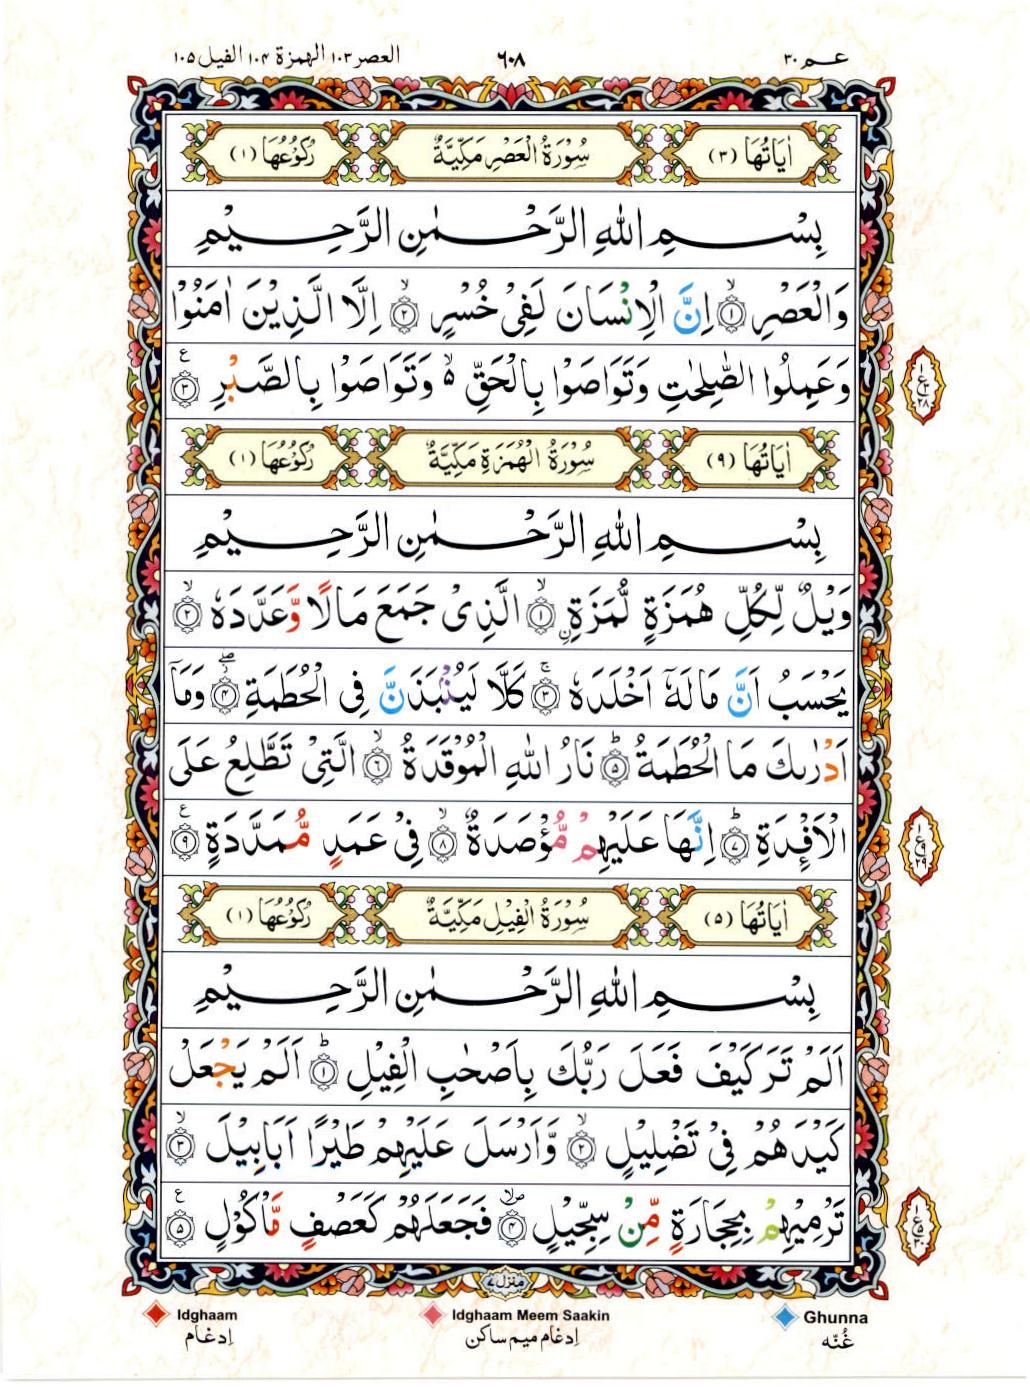 عـم ٣٠
٦٠٨
العصر ١٠٣ الهمزة ١٠٤ الفيل ١٠٥
اٰیَاتُهَا (٣) سُوْرَةُ الْعَصْرِ مَكِّيَّةٌ رُكُوْعُهَا (١)
بِسْمِ اللّٰهِ الرَّحْمٰنِ الرَّحِيْمِ
وَالْعَصْرِ ۙ﴿١﴾ اِنَّ الْاِنْسَانَ لَفِیْ خُسْرٍ ۙ﴿٢﴾ اِلَّا الَّذِیْنَ اٰمَنُوْا
وَعَمِلُوا الصّٰلِحٰتِ وَتَوَاصَوْا بِالْحَقِّ ۙ۬ وَتَوَاصَوْا بِالصَّبْرِ ﴿٣﴾ ع
اٰیَاتُهَا (٩) سُوْرَةُ الْهُمَزَةِ مَكِّيَّةٌ رُكُوْعُهَا (١)
بِسْمِ اللّٰهِ الرَّحْمٰنِ الرَّحِيْمِ
وَیْلٌ لِّكُلِّ هُمَزَةٍ لُّمَزَةِ ۙ﴿١﴾ اِ۟لَّذِیْ جَمَعَ مَالًا وَّعَدَّدَهٗ ۙ﴿٢﴾
یَحْسَبُ اَنَّ مَالَهٗۤ اَخْلَدَهٗ ۚ﴿٣﴾ كَلَّا لَیُنْۢبَذَنَّ فِی الْحُطَمَةِ ۖ﴿٤﴾ وَمَاۤ
اَدْرٰىكَ مَا الْحُطَمَةُ ؕ﴿٥﴾ نَارُ اللّٰهِ الْمُوْقَدَةُ ۙ﴿٦﴾ الَّتِیْ تَطَّلِعُ عَلَی
الْاَفْـِٕدَةِ ؕ﴿٧﴾ اِنَّهَا عَلَیْهِمْ مُّؤْصَدَةٌ ۙ﴿٨﴾ فِیْ عَمَدٍ مُّمَدَّدَةٍ ﴿٩﴾ ع
اٰیَاتُهَا (٥) سُوْرَةُ الْفِیْلِ مَكِّيَّةٌ رُكُوْعُهَا (١)
بِسْمِ اللّٰهِ الرَّحْمٰنِ الرَّحِيْمِ
اَلَمْ تَرَ كَیْفَ فَعَلَ رَبُّكَ بِاَصْحٰبِ الْفِیْلِ ؕ﴿١﴾ اَلَمْ یَجْعَلْ
كَیْدَهُمْ فِیْ تَضْلِیْلٍ ۙ﴿٢﴾ وَّاَرْسَلَ عَلَیْهِمْ طَیْرًا اَبَابِیْلَ ۙ﴿٣﴾
تَرْمِیْهِمْ بِحِجَارَةٍ مِّنْ سِجِّیْلٍ ۪ۙ﴿٤﴾ فَجَعَلَهُمْ كَعَصْفٍ مَّاْكُوْلٍ ﴿٥﴾ ع
منزل ٧
Ghunna
Idghaam Meem Saakin
Idghaam
غُنّه
اِدغام میم ساکن
اِدغام